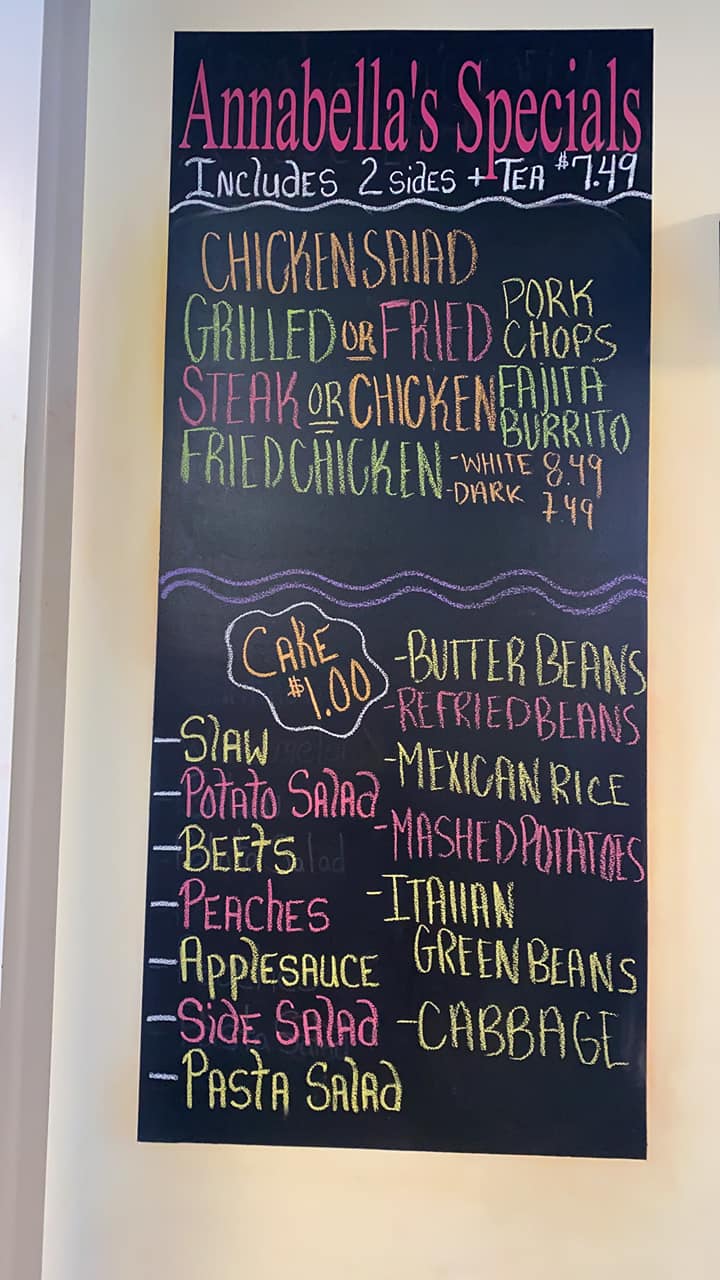 Annabella's Specials
Includes 2 sides + Tea $7.49
CHICKEN SALAD
GRILLED OR FRIED PORK CHOPS
STEAK OR CHICKEN FAJITA BURRITO
FRIED CHICKEN -WHITE 8.49
-DARK 7.49
CAKE
$1.00
-BUTTER BEANS
-REFRIED BEANS
-MEXICAN RICE
-MASHED POTATOES
-ITALIAN
GREEN BEANS
-CABBAGE
-Slaw
-Potato Salad
-Beets
-Peaches
-Applesauce
-Side Salad
-Pasta Salad